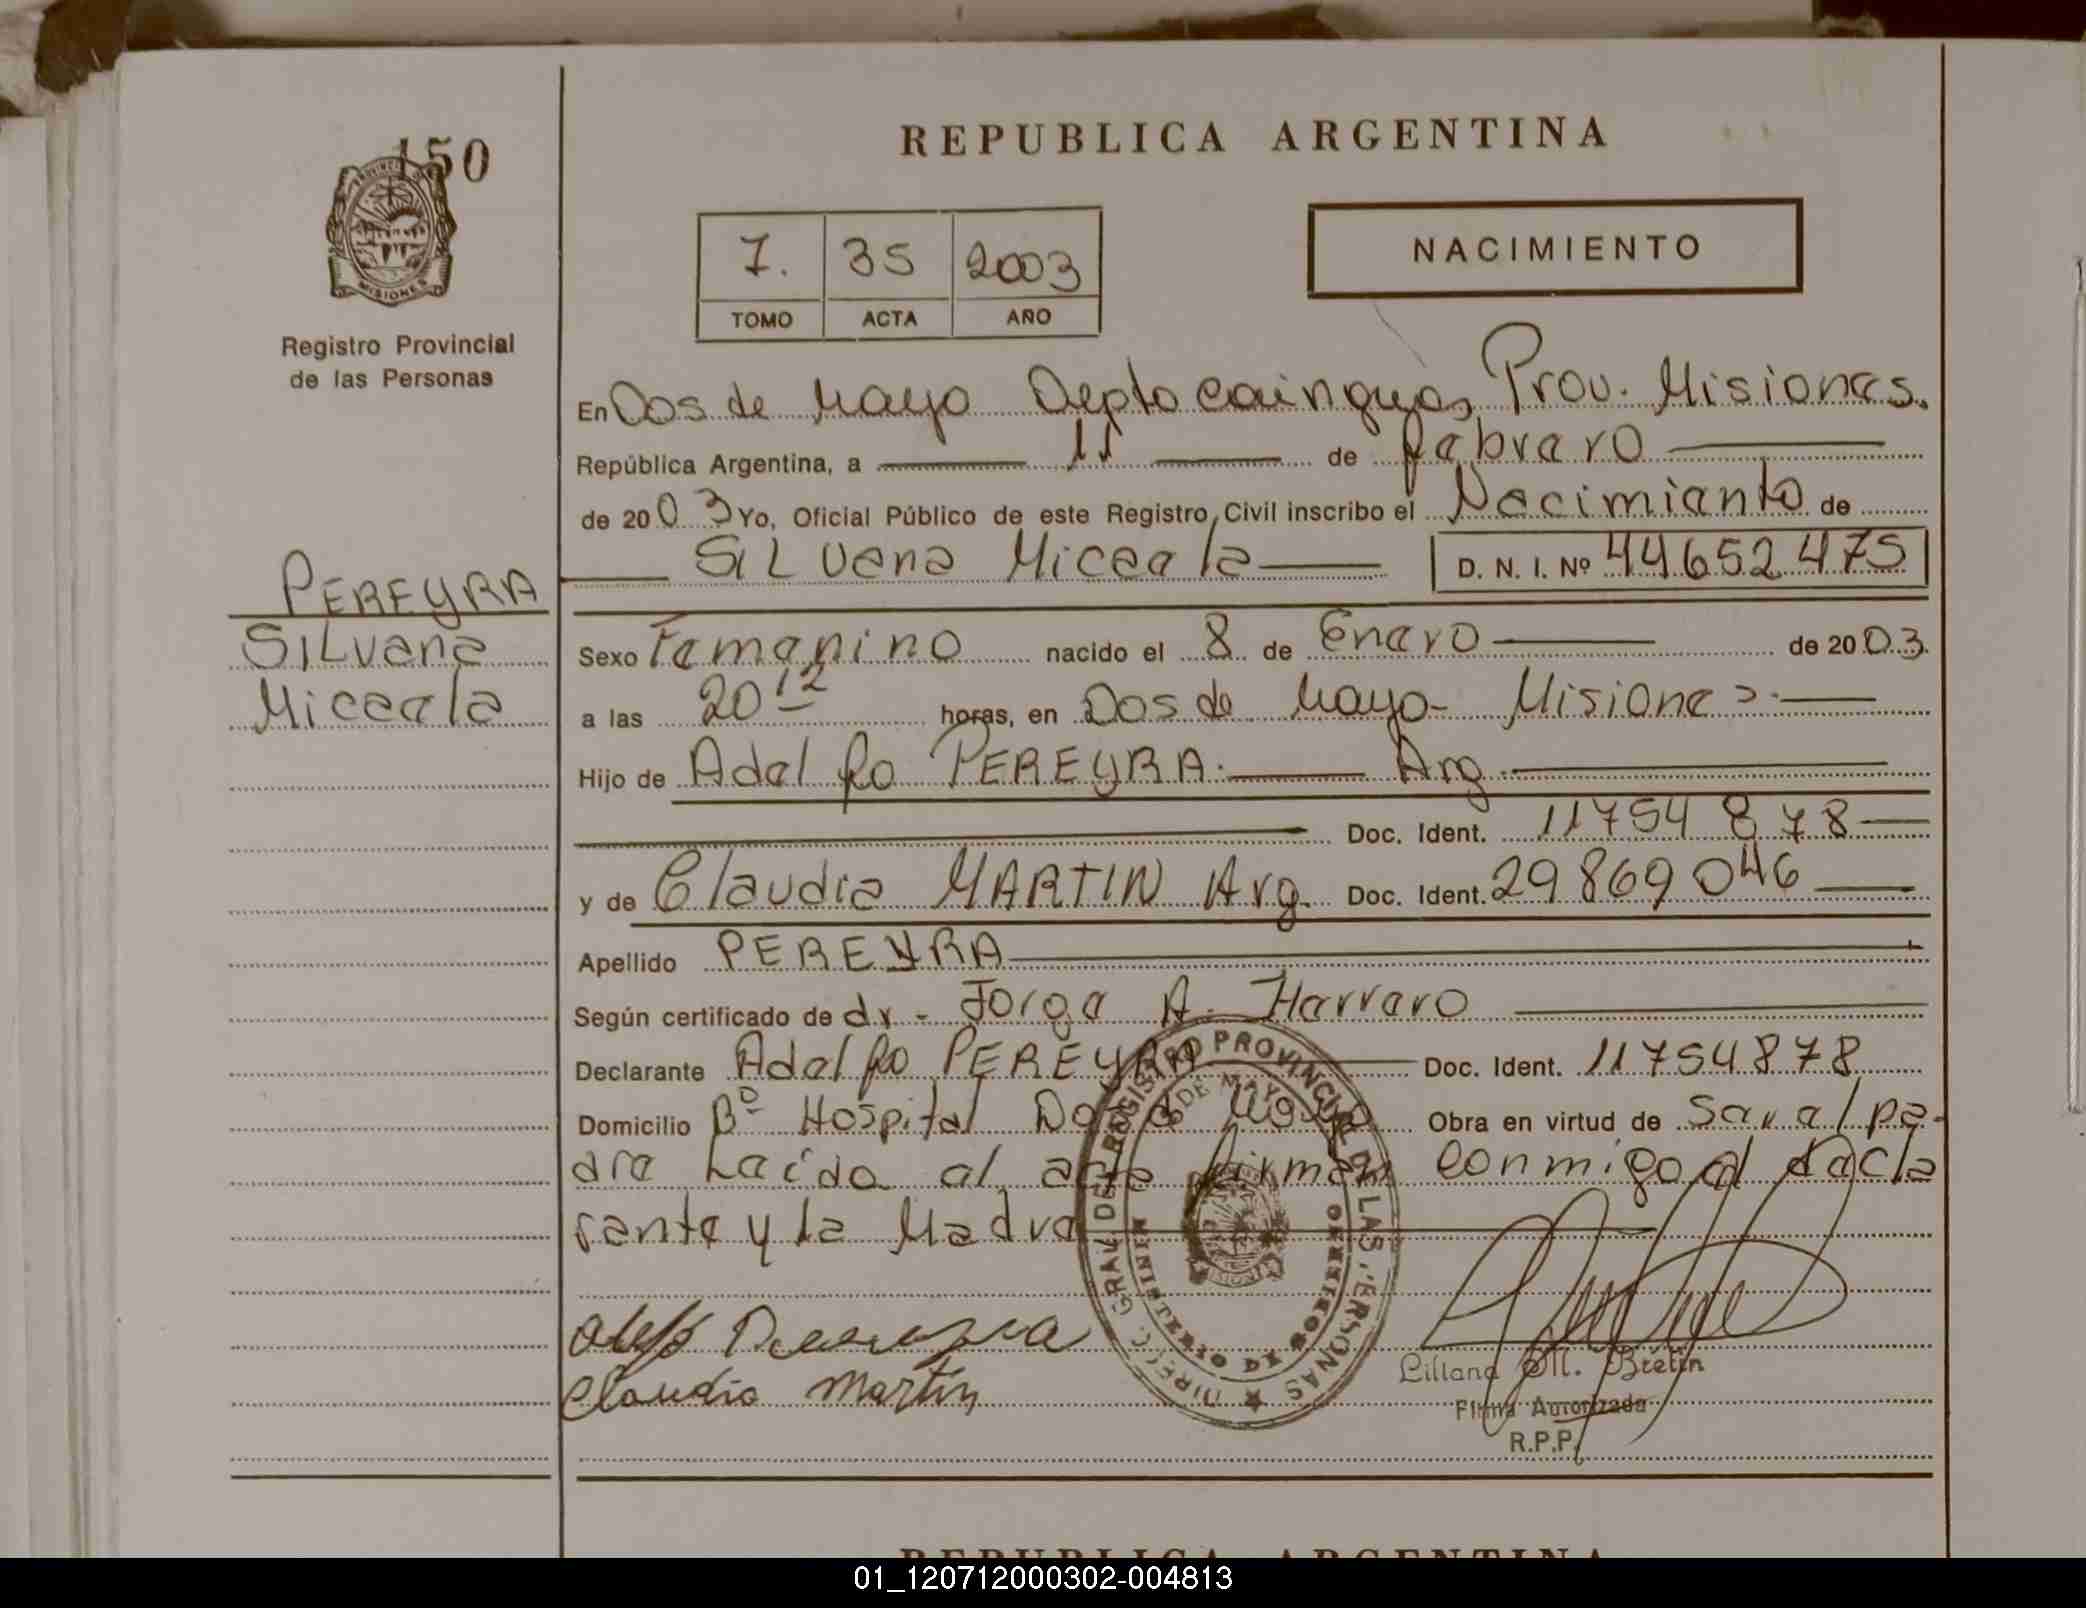 150
PROVINCIA DE
MISIONES
Registro Provincial
de las Personas
REPUBLICA ARGENTINA
7. 35 2003
TOMO ACTA AÑO
NACIMIENTO
En Dos de Mayo Depto Cainguas Prov. Misiones.
República Argentina, a 11 de febrero
de 2003 Yo, Oficial Público de este Registro Civil inscribo el Nacimiento de
SILvana Micaela D. N. I. Nº 44652475
PEREYRA
SILvana
Micaela
Sexo Femenino nacido el 8 de Enero de 2003.
a las 20 12 horas, en Dos de Mayo - Misiones.
Hijo de Adolfo PEREYRA. Arg.
Doc. Ident. 11754878
y de Claudia MARTIN Arg. Doc. Ident. 29869046
Apellido PEREYRA
Según certificado de dr. Jorge A. Harraro
Declarante Adolfo PEREYRA Doc. Ident. 11754878
Domicilio Bº Hospital Dos de Mayo Obra en virtud de Ser el pa-
dre Leído al acta firman conmigo el decla
rante y la Madre
DIRECC. GRAL. DEL REGISTRO PROVINCIAL DE LAS PERSONAS
DOS DE MAYO
MINISTERIO DE GOBIERNO
MISIONES
Claudia Martin
Liliana M. Bretin
Firma Autorizada
R.P.P.
REPUBLICA ARGENTINA
01_120712000302-004813